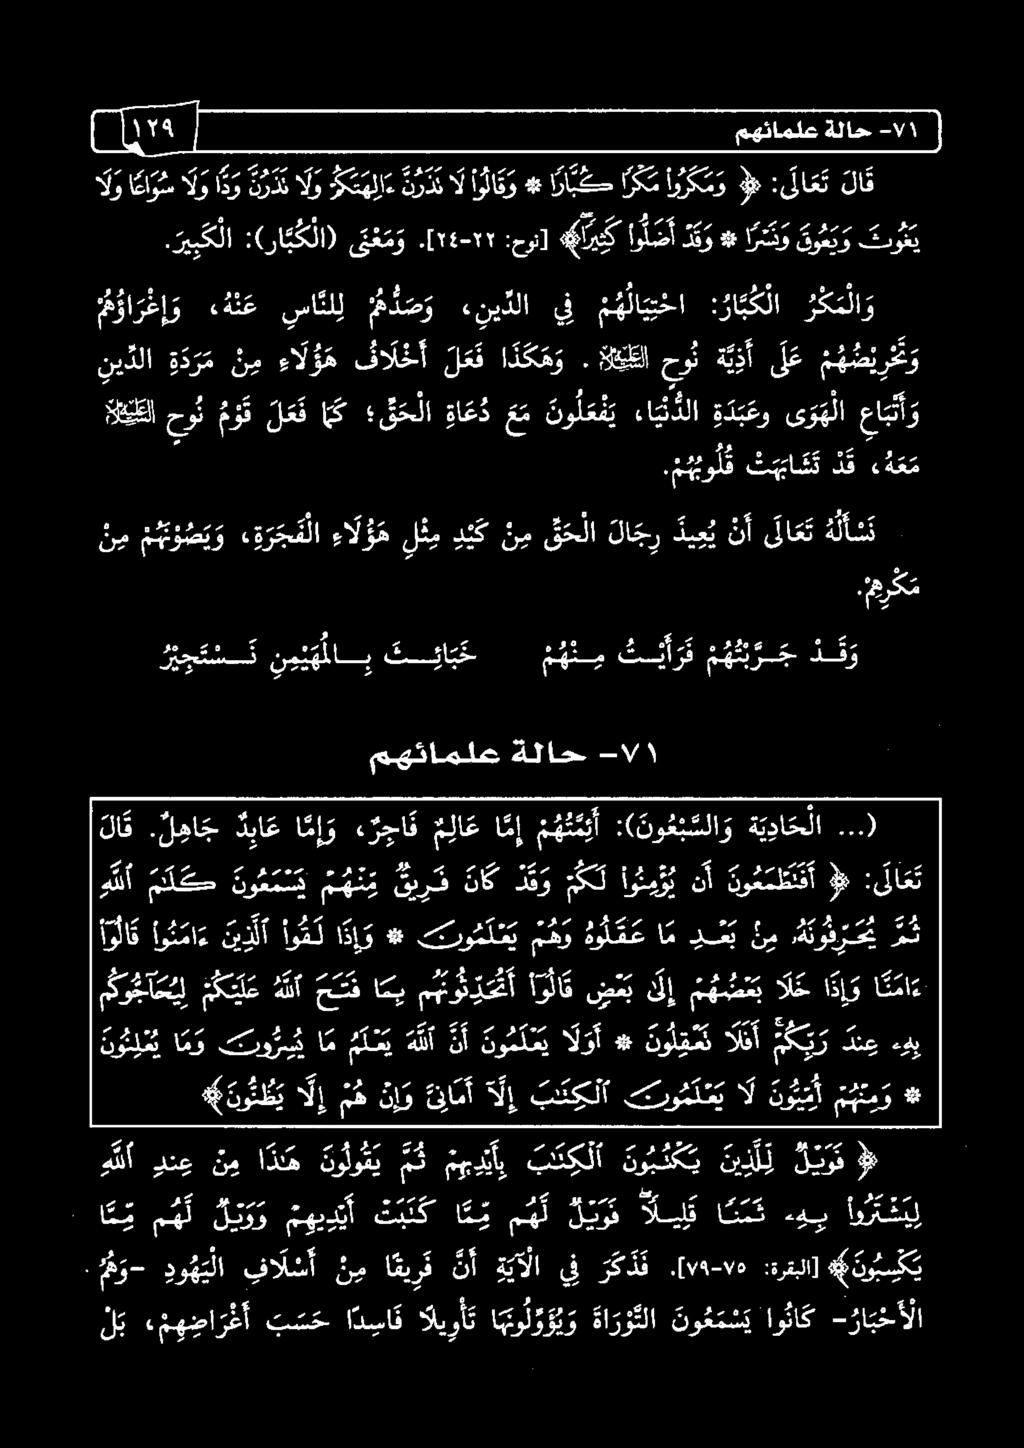 ٧١- حالة علمائهم ١٢٩
قَالَ تَعَالَى: ﴿ وَمَكَرُوا۟ مَكْرًا كُبَّارًا * وَقَالُوا۟ لَا نَذَرُنَّ ءَالِهَتَكُمْ وَلَا نَذَرُنَّ وَدًّا وَلَا سُوَاعًا وَلَا
يَغُوثَ وَيَعُوقَ وَنَسْرًا * وَقَدْ أَضَلُّوا۟ كَثِيرًا ﴾ [نوح: ٢٢-٢٤]. وَمَعْنَى (الْكُبَّارِ): الْكَبِيرَ.
وَالْمَكْرُ الْكُبَّارُ: احْتِيَالُهُمْ فِي الدِّينِ، وَصَدُّهُمْ لِلنَّاسِ عَنْهُ، وَإِغْرَاؤُهُمْ
وَتَحْرِيضُهُمْ عَلَى أَذِيَّةِ نُوحٍ عليه السلام. وَهَكَذَا فَعَلَ أَخْلَافُ هَؤُلَاءِ مِنْ مَرَدَةِ الدِّينِ
وَأَتْبَاعِ الْهَوَى وعَبَدَةِ الدُّنْيَا، يَفْعَلُونَ مَعَ دُعَاةِ الْحَقِّ؛ كَمَا فَعَلَ قَوْمُ نُوحٍ عليه السلام
مَعَهُ، قَدْ تَشَابَهَتْ قُلُوبُهُمْ.
نَسْأَلُهُ تَعَالَى أَنْ يُعِيذَ رِجَالَ الْحَقِّ مِنْ كَيْدِ مِثْلِ هَؤُلَاءِ الْفَجَرَةِ، وَيَصُونَهُمْ مِنْ
مَكْرِهِمْ.
وَقَدْ جَرَّبْتُهُمْ فَرَأَيْتُ مِنْهُمْ خَبَائِثَ بِالْمُهَيْمِنِ نَسْتَجِيْرُ
٧١- حالة علمائهم
(... الْحَادِيَةُ وَالسَّبْعُونَ): أَئِمَّتُهُمْ إِمَّا عَالِمٌ فَاجِرٌ، وَإِمَّا عَابِدٌ جَاهِلٌ. قَالَ
تَعَالَى: ﴿ أَفَتَطْمَعُونَ أَن يُؤْمِنُوا۟ لَكُمْ وَقَدْ كَانَ فَرِيقٌ مِّنْهُمْ يَسْمَعُونَ كَلَـٰمَ ٱللَّهِ
ثُمَّ يُحَرِّفُونَهُۥ مِنۢ بَعْدِ مَا عَقَلُوهُ وَهُمْ يَعْلَمُونَ * وَإِذَا لَقُوا۟ ٱلَّذِينَ ءَامَنُوا۟ قَالُوٓا۟
ءَامَنَّا وَإِذَا خَلَا بَعْضُهُمْ إِلَىٰ بَعْضٍ قَالُوٓا۟ أَتُحَدِّثُونَهُم بِمَا فَتَحَ ٱللَّهُ عَلَيْكُمْ لِيُحَآجُّوكُم
بِهِۦ عِندَ رَبِّكُمْ ۚ أَفَلَا تَعْقِلُونَ * أَوَلَا يَعْلَمُونَ أَنَّ ٱللَّهَ يَعْلَمُ مَا يُسِرُّونَ وَمَا يُعْلِنُونَ
* وَمِنْهُمْ أُمِّيُّونَ لَا يَعْلَمُونَ ٱلْكِتَـٰبَ إِلَّآ أَمَانِىَّ وَإِنْ هُمْ إِلَّا يَظُنُّونَ ﴾
﴿ فَوَيْلٌ لِّلَّذِينَ يَكْتُبُونَ ٱلْكِتَـٰبَ بِأَيْدِيهِمْ ثُمَّ يَقُولُونَ هَـٰذَا مِنْ عِندِ ٱللَّهِ
لِيَشْتَرُوا۟ بِهِۦ ثَمَنًا قَلِيلًا ۖ فَوَيْلٌ لَّهُم مِّمَّا كَتَبَتْ أَيْدِيهِمْ وَوَيْلٌ لَّهُم مِّمَّا
يَكْسِبُونَ ﴾ [البقرة: ٧٥-٧٩]. فَذَكَرَ فِي الْآيَةِ أَنَّ فَرِيقًا مِنْ أَسْلَافِ الْيَهُودِ -وَهُمُ
الْأَحْبَارُ- كَانُوا يَسْمَعُونَ التَّوْرَاةَ وَيُؤَوِّلُونَهَا تَأْوِيلًا فَاسِدًا حَسَبَ أَغْرَاضِهِمْ، بَلْ